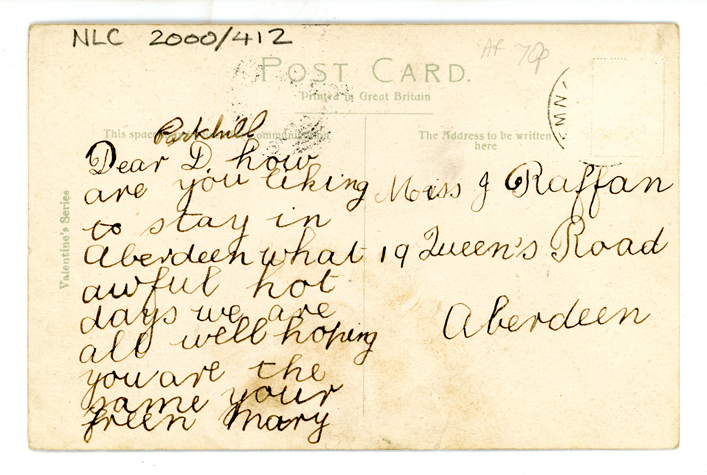 NLC 2000/412
Af 70p
POST CARD.
Printed in Great Britain
This space communication
The Address to be written
here
Valentine's Series
Parkhill
Dear D. how
are you liking
to stay in
Aberdeen what
awful hot
days we are
all well hoping
you are the
same your
freen Mary
Miss J Raffan
19 Queen's Road
Aberdeen